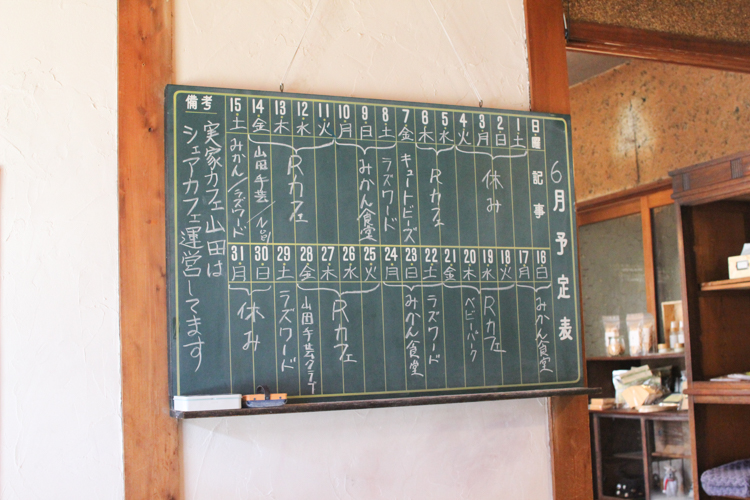 6月予定表
日 曜 記事
1 土
2 日
3 月
4 火
休み
5 水
6 木
Rカフェ
7 金
キュートビーズ
8 土
ラズワード
9 日
10 月
みかん食堂
11 火
12 水
13 木
Rカフェ
14 金
山田手芸/
15 土
みかん/ラズワード
16 日
17 月
みかん食堂
18 火
19 水
Rカフェ
20 木
ベビーパーク
21 金
22 土
ラズワード
23 日
24 月
みかん食堂
25 火
26 水
27 木
Rカフェ
28 金
山田手芸クラブ
29 土
ラズワード
30 日
31 月
休み
備考
実家カフェ山田は
シェアカフェ運営してます